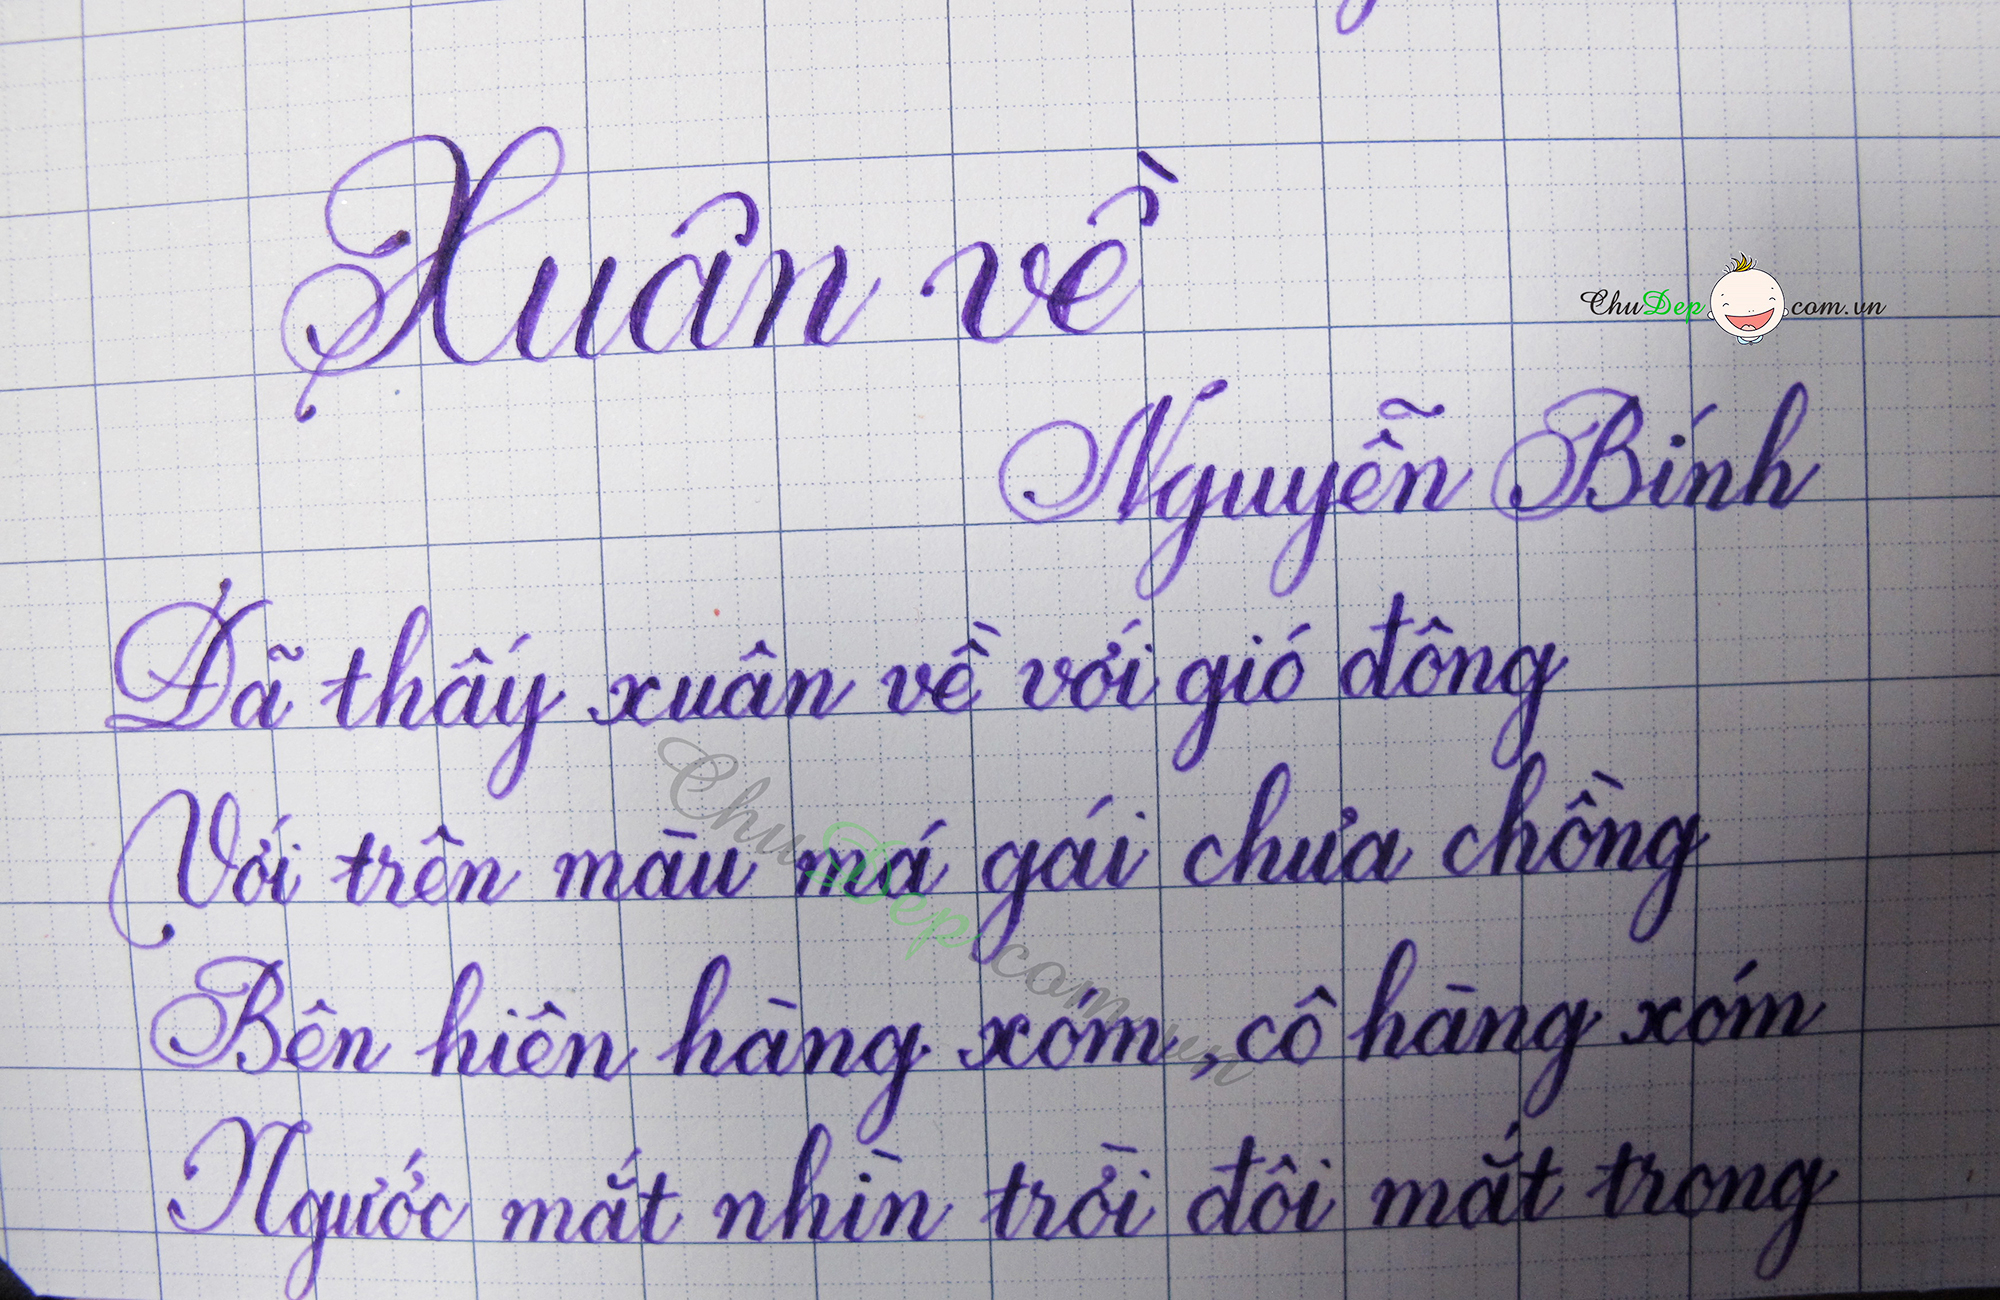 Xuân về
ChuDep.com.vn
Nguyễn Bính
Đã thấy xuân về với gió đông
Với trên màu má gái chưa chồng
Bên hiên hàng xóm, cô hàng xóm
Ngước mắt nhìn trời đôi mắt trong
ChuDep.com.vn